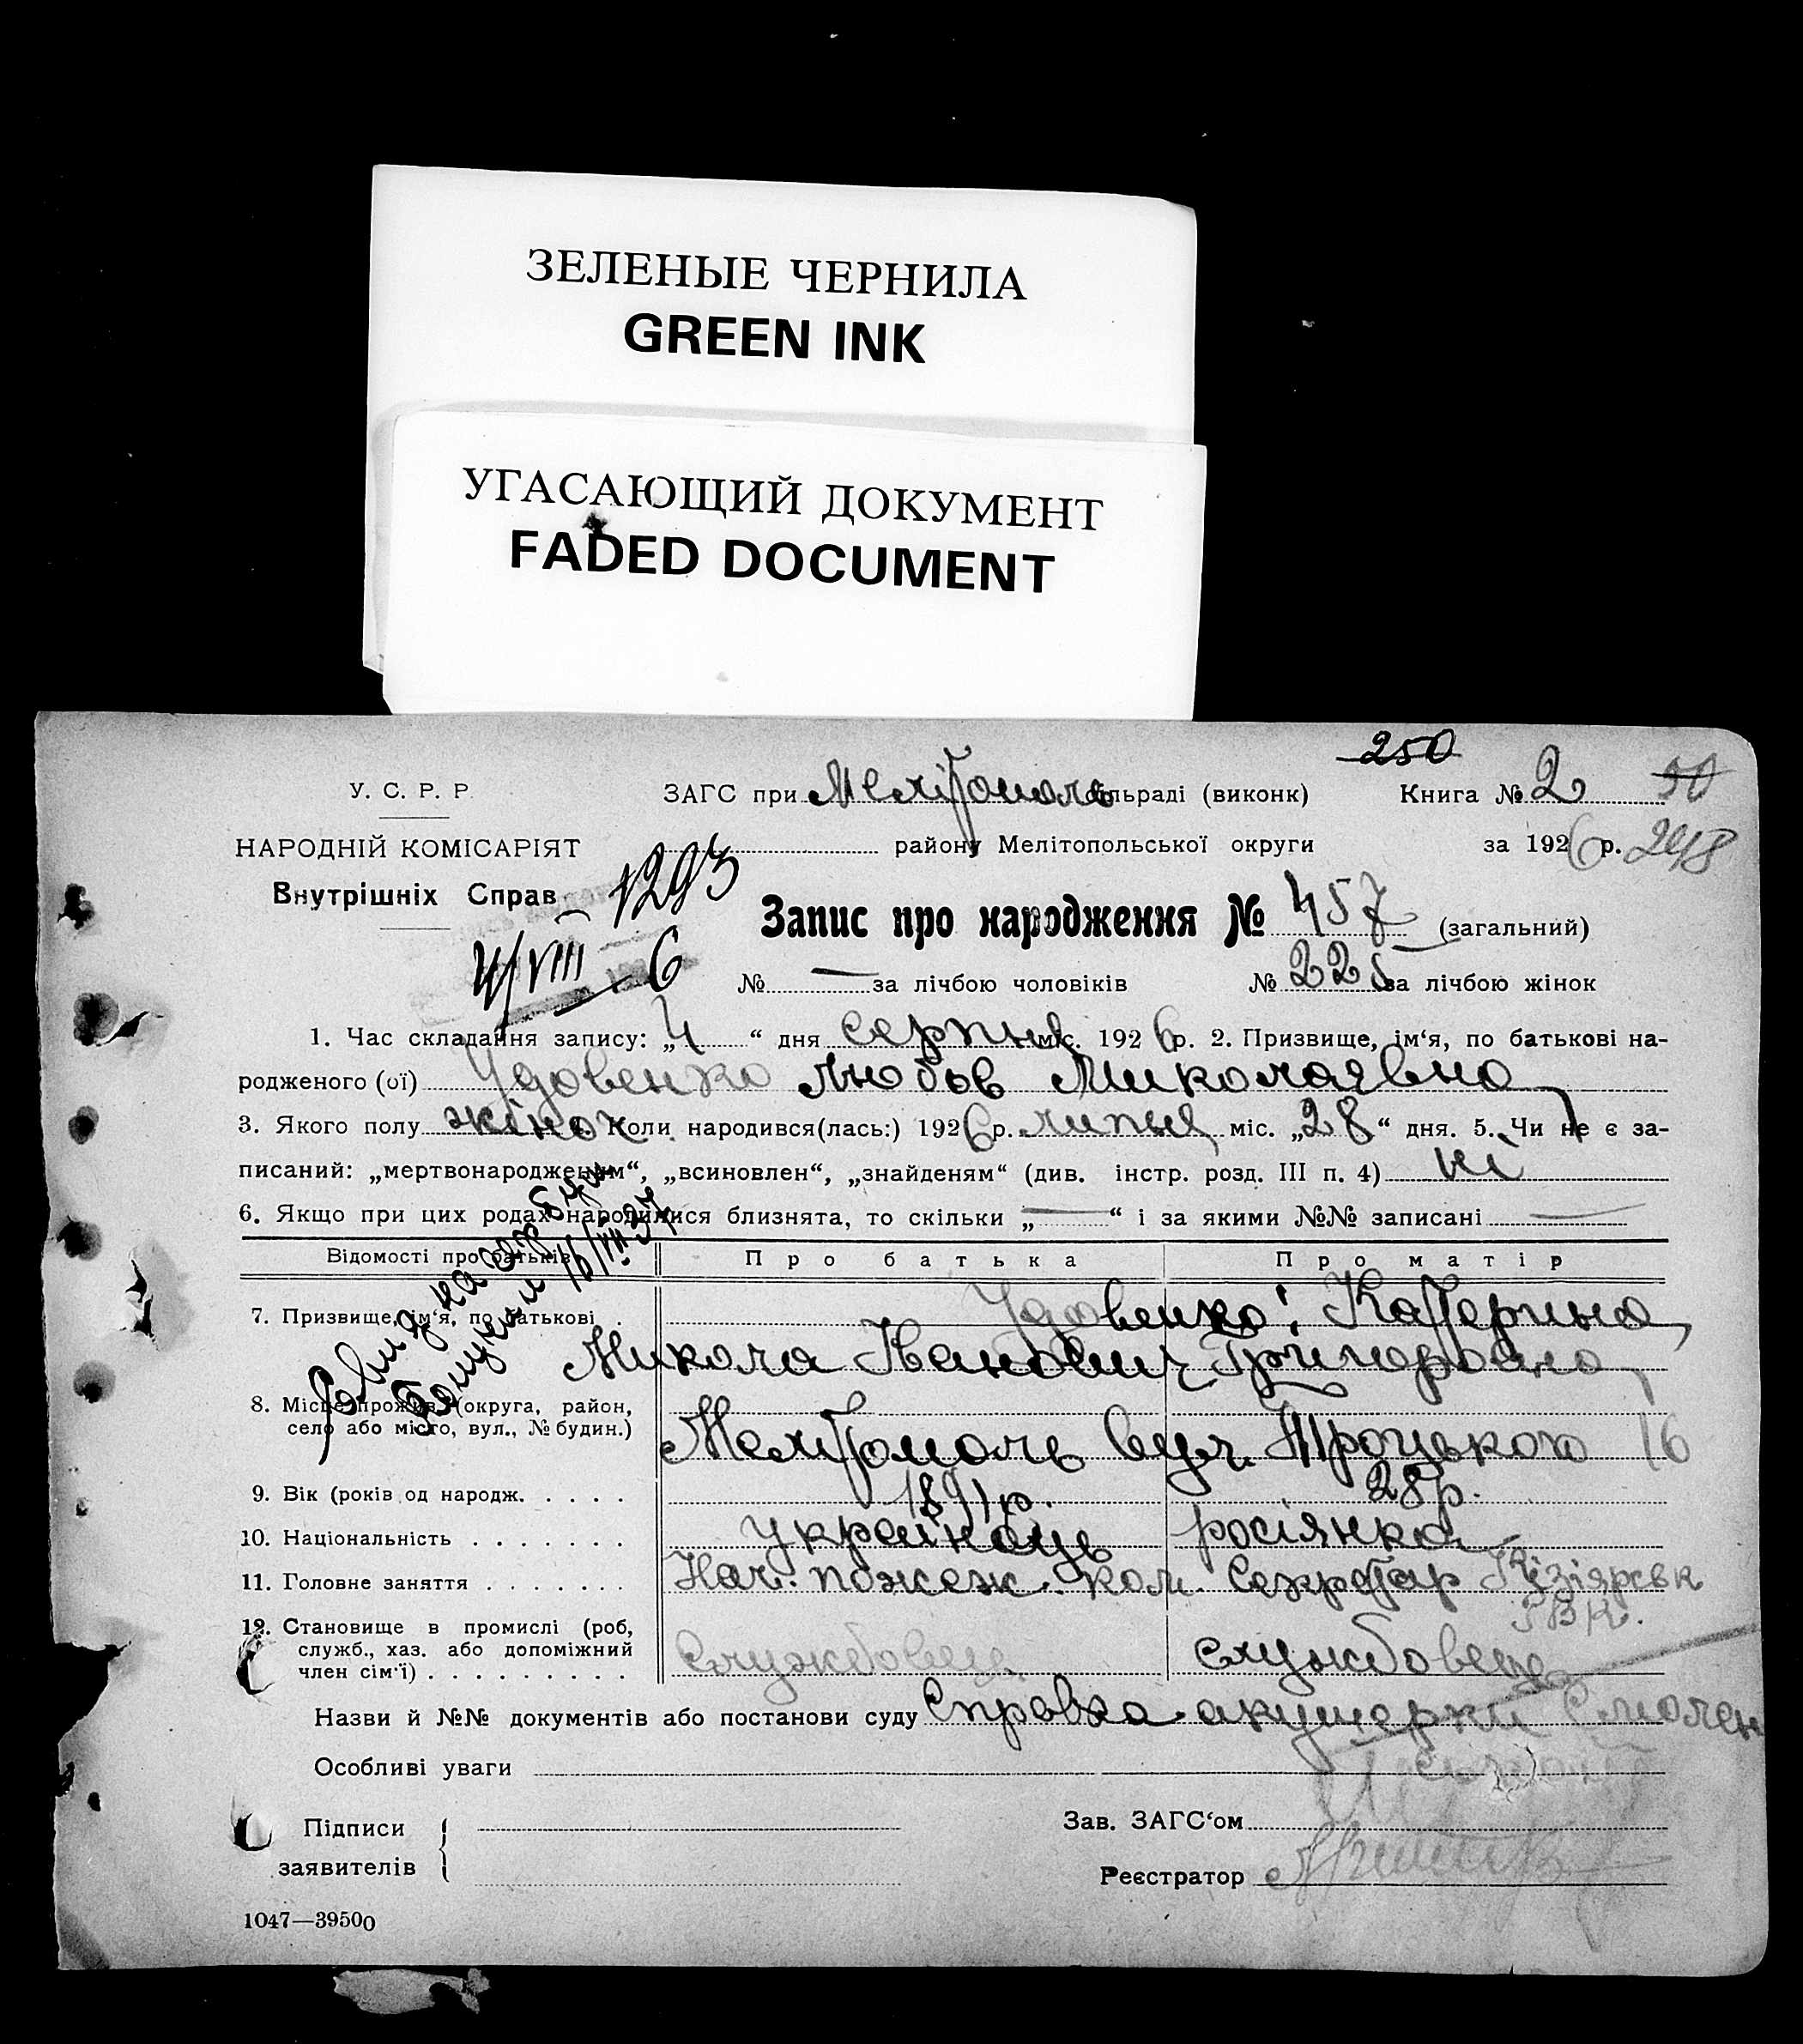 ЗЕЛЕНЫЕ ЧЕРНИЛА
GREEN INK
УГАСАЮЩИЙ ДОКУМЕНТ
FADED DOCUMENT
250
У. С. Р. Р. ЗАГС при Мелітополь сільраді (виконк) Книга № 2 50
НАРОДНІЙ КОМІСАРІЯТ району Мелітопольської округи за 1926 р. 248
Внутрішніх Справ 1293
Запис про народження № 457 (загальний)
4/VIII - 6
№ — за лічбою чоловіків № 225 за лічбою жінок
1. Час складання запису: „4“ дня серпня міс. 1926 р. 2. Призвище, ім‘я, по батькові на-
родженого (ої) Удовенко Любов Миколаявна
3. Якого полу жіноч. 4. Коли народився(лась:) 1926 р. липня міс. „28“ дня. 5. Чи не є за-
писаний: „мертвонародженим“, „всиновлен“, „знайденям“ (див. інстр. розд. III п. 4) ні
6. Якщо при цих родах народилися близнята, то скільки „—“ і за якими №№ записані —
16/VII 37
Відомості про батьків Про батька Про матір
7. Призвище, ім‘я, по батькові . Удовенко: Катерина
Микола Іванович Григоровна
8. Місце прожив. (округа, район,
село або місто, вул., № будин.) Мелітополь вул. Троцького 16
9. Вік (років од народж. . . . . 1891 р. 28 р.
10. Національність . . . . . . . українець росіянка
11. Головне заняття . . . . . . . Нач. пожеж. ком. Секретар Кізіярськ
РВК.
12. Становище в промислі (роб,
служб., хаз. або допоміжний
член сім‘ї) . . . . . . . . . Службовець службовець
Назви й №№ документів або постанови суду Справка акушерки Смолен
Особливі уваги
Підписи
заявителів
Зав. ЗАГС‘ом
Реєстратор
1047—39500